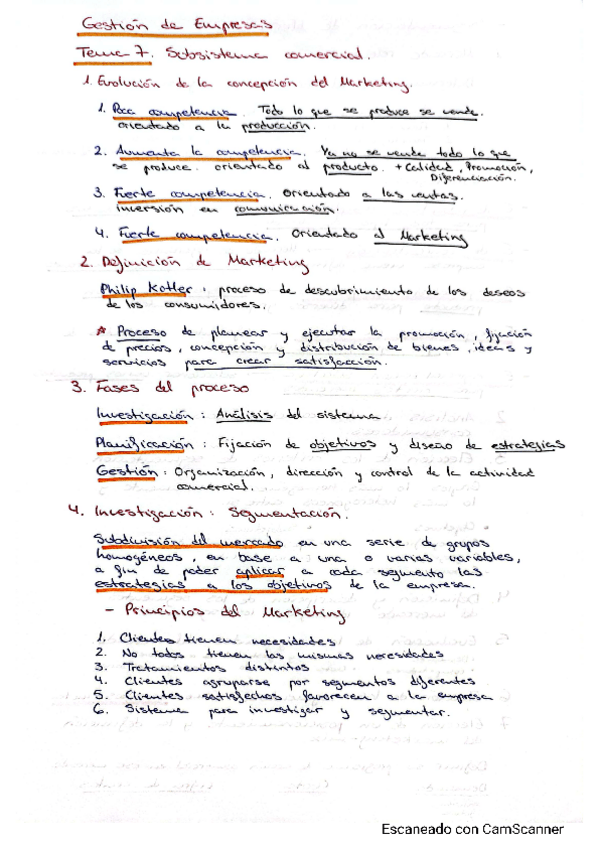 Gestión de Empresas
Tema 7. Subsistema comercial.
1. Evolución de la concepción del Marketing.
1. Poca competencia. Todo lo que se produce se vende.
orientado a la producción.
2. Aumenta la competencia. Ya no se vende todo lo que
se produce. orientado al producto. + Calidad, Promoción,
Diferenciación.
3. Fuerte competencia. Orientado a las ventas.
inversión en comunicación.
4. Fuerte competencia. Orientado al Marketing
2. Definición de Marketing
Philip Kotler: proceso de descubrimiento de los deseos
de los consumidores.
* Proceso de planear y ejecutar la promoción, fijación
de precios, concepción y distribución de bienes, ideas y
servicios para crear satisfacción.
3. Fases del proceso
Investigación: Análisis del sistema
Planificación: Fijación de objetivos y diseño de estrategias
Gestión: Organización, dirección y control de la actividad
comercial.
4. Investigación: Segmentación.
Subdivisión del mercado en una serie de grupos
homogéneos, en base a una o varias variables,
a fin de poder aplicar a cada segmento las
estrategias a los objetivos de la empresa.
- Principios del Marketing
1. Clientes tienen necesidades
2. No todos tienen las mismas necesidades
3. Tratamientos distintos
4. Clientes agruparse por segmentos diferentes
5. Clientes satisfechos favorecen a la empresa
6. Sistema para investigar y segmentar.
Escaneado con CamScanner